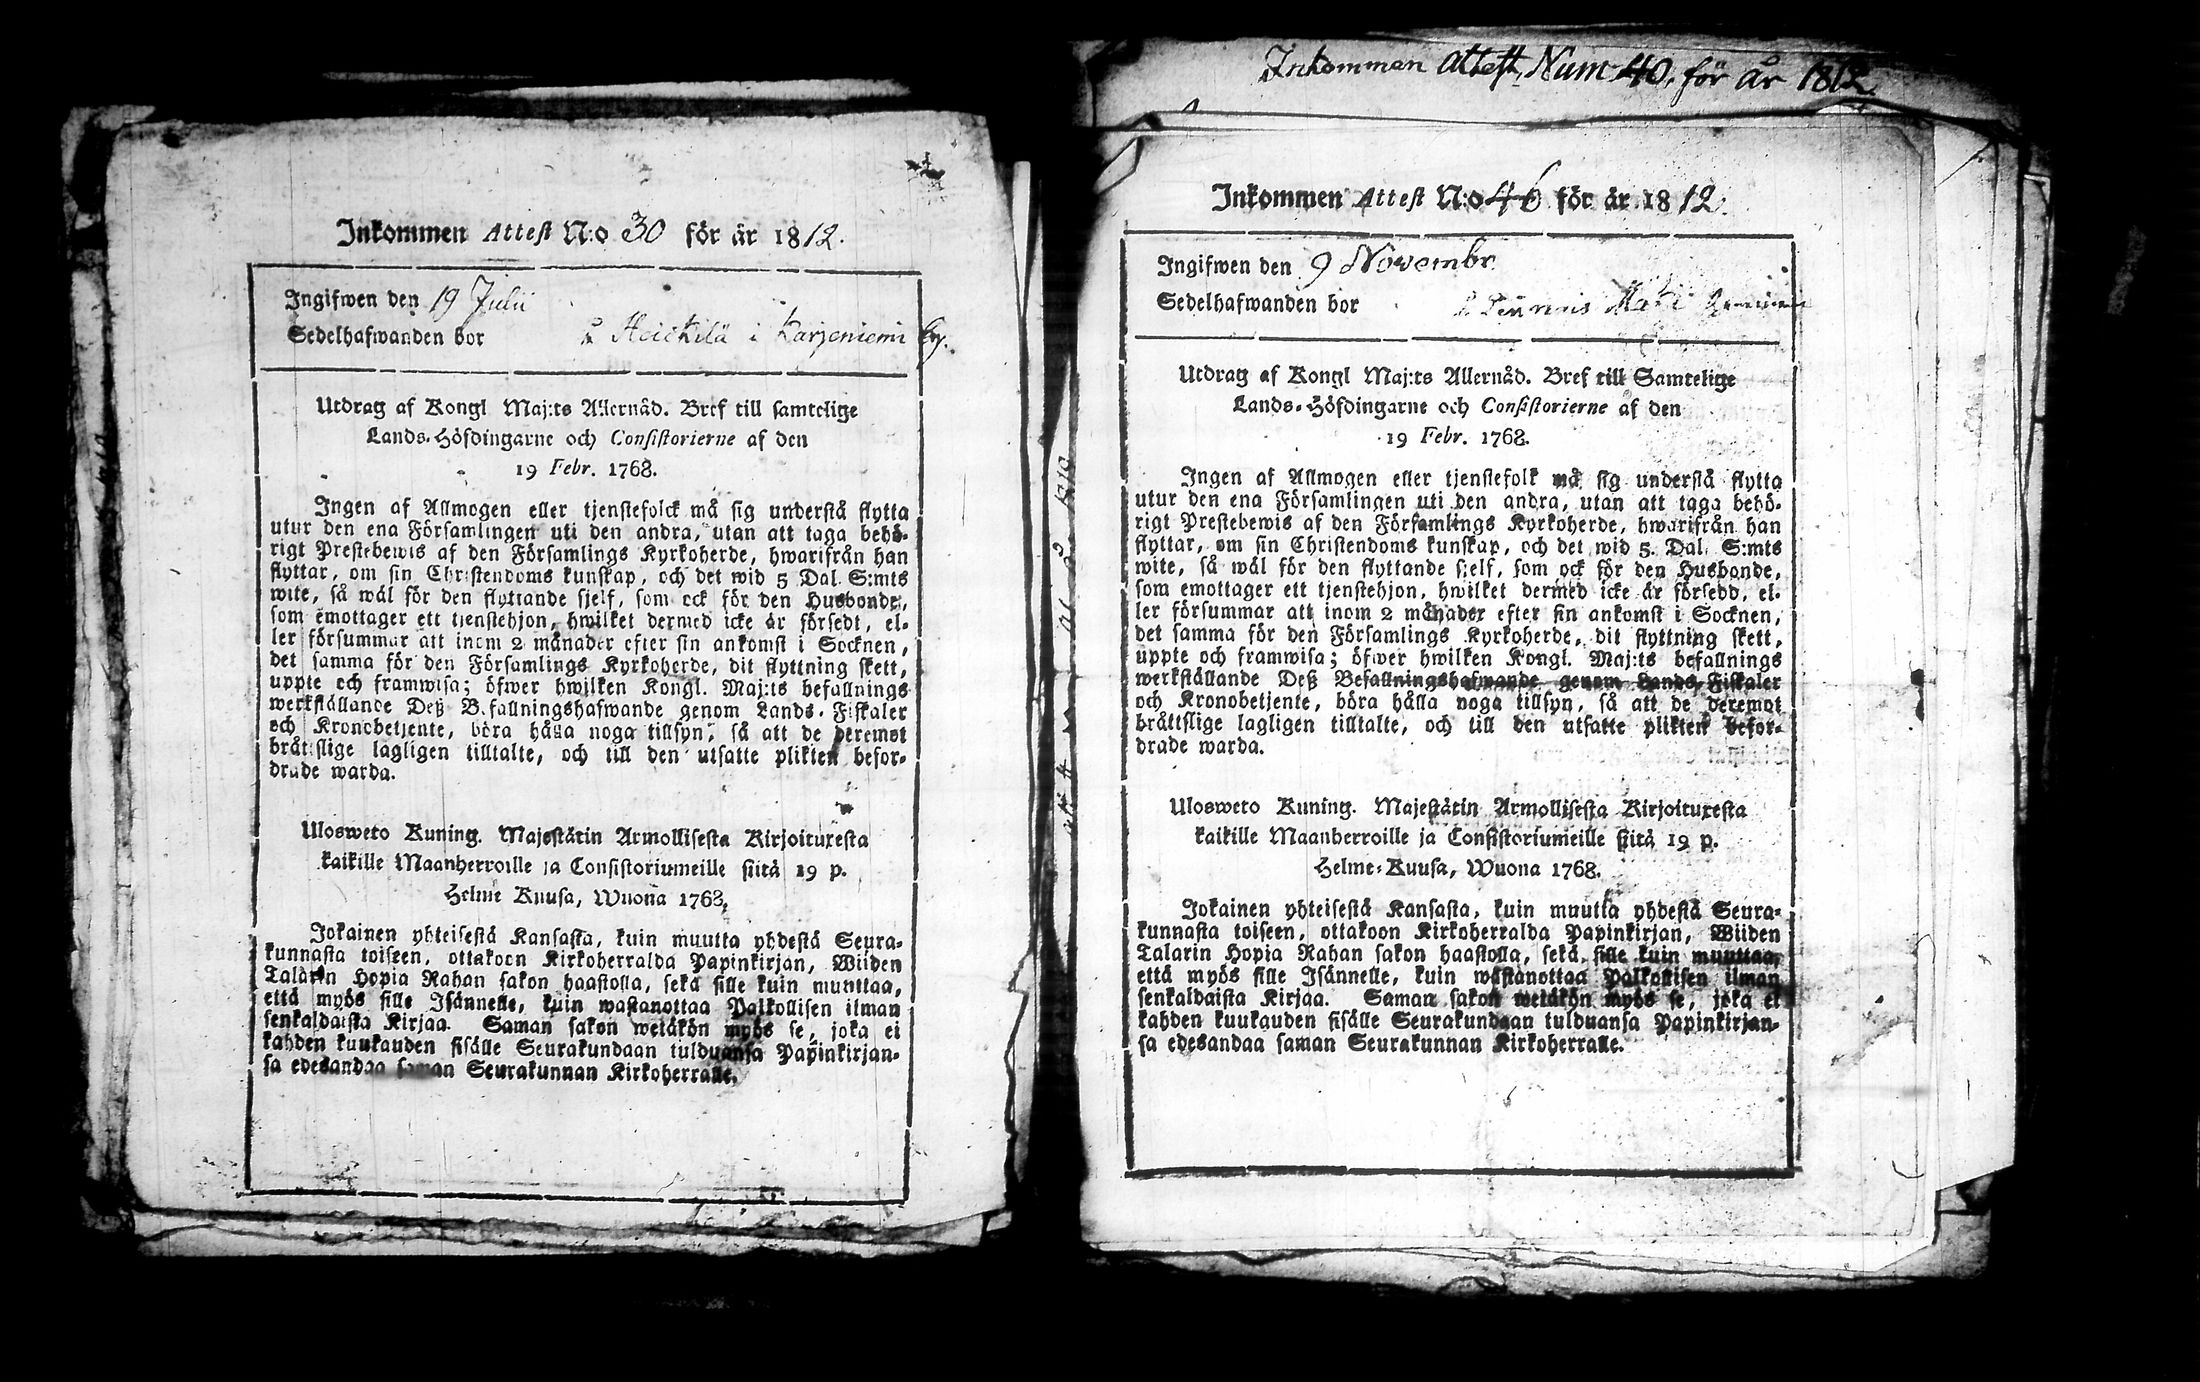 Inkommen Attest N:o 30 för år 1812.
Ingifwen den 19 Julii
Sedelhafwanden bor å Heickilä i Karjeniemi by.
Utdrag af Kongl Maj:ts Allernåd. Bref till samtelige
Lands-Höfdingarne och Consistorierne af den
19 Febr. 1768.
Ingen af Allmogen eller tjenstefolck må sig understå flytta
utur den ena Församlingen uti den andra, utan att taga behö-
rigt Prestebewis af den Församlings Kyrkoherde, hwarifrån han
flyttar, om sin Christendoms kunskap, och det wid 5 Dal. S:mts
wite, så wäl för den flyttande sjelf, som ock för den Husbonde,
som emottager ett tjenstehjon, hwilket dermed icke är försedt, el-
ler försummar att inom 2 månader efter sin ankomst i Socknen,
det samma för den Församlings Kyrkoherde, dit flyttning skett,
uppte och framwisa; öfwer hwilken Kongl. Maj:ts befallnings
werkställande Deß Befallningshafwande genom Lands-Fiskaler
och Kronobetjente, böra hålla noga tillsyn, så att de deremot
bråttslige lagligen tilltalte, och till den utsatte plikten befor-
drade warda.
Ulosweto Kuning. Majestätin Armollisesta Kirjoituxesta
kaikille Maanherroille ja Consistoriumeille siitä 19 p.
Helme Kuusa, Wuona 1768.
Jokainen yhteisestä Kansasta, kuin muutta yhdestä Seura-
kunnasta toiseen, ottakoon Kirkoherralda Papinkirjan, Wiiden
Talarin Hopia Rahan sakon haastolla, sekä sille kuin muuttaa,
että myös sille Isännelle, kuin wastanottaa Palkollisen ilman
senkaldaista Kirjaa. Saman sakon wetäkön myös se, joka ei
kahden kuukauden sisälle Seurakundaan tulduansa Papinkirjan-
sa edesandaa saman Seurakunnan Kirkoherralle.
Inkommen attest, Num 40. för år 1812.
Inkommen Attest N:o 46 för år 1812.
Ingifwen den 9 Novembr
Sedelhafwanden bor
Utdrag af Kongl Maj:ts Allernåd. Bref till Samtelige
Lands-Höfdingarne och Consistorierne af den
19 Febr. 1768.
Ingen af Allmogen eller tjenstefolk må sig understå flytta
utur den ena Församlingen uti den andra, utan att taga behö-
rigt Prestebewis af den Församlings Kyrkoherde, hwarifrån han
flyttar, om sin Christendoms kunskap, och det wid 5. Dal. S:mts
wite, så wäl för den flyttande sjelf, som ock för den Husbonde,
som emottager ett tjenstehjon, hwilket dermed icke är försedd, el-
ler försummar att inom 2 månader efter sin ankomst i Socknen,
det samma för den Församlings Kyrkoherde, dit flyttning skett,
uppte och framwisa; öfwer hwilken Kongl. Maj:ts befallnings
werkställande Deß Befallningshafwande genom Lands-Fiskaler
och Kronobetjente, böra hålla noga tillsyn, så att de deremot
bråttslige lagligen tilltalte, och till den utsatte plikten befor-
drade warda.
Ulosweto Kuning. Majestätin Armollisesta Kirjoituxesta
kaikille Maanherroille ja Consistoriumeille siitä 19 p.
Helme-Kuusa, Wuona 1768.
Jokainen yhteisestä Kansasta, kuin muutta yhdestä Seura-
kunnasta toiseen, ottakoon Kirkoherralda Papinkirjan, Wiiden
Talarin Hopia Rahan sakon haastolla, sekä sille kuin muuttaa,
että myös sille Isännelle, kuin wastanottaa Palkollisen ilman
senkaldaista Kirjaa. Saman sakon wetäkön myös se, joka ei
kahden kuukauden sisälle Seurakundaan tulduansa Papinkirjan-
sa edesandaa saman Seurakunnan Kirkoherralle.